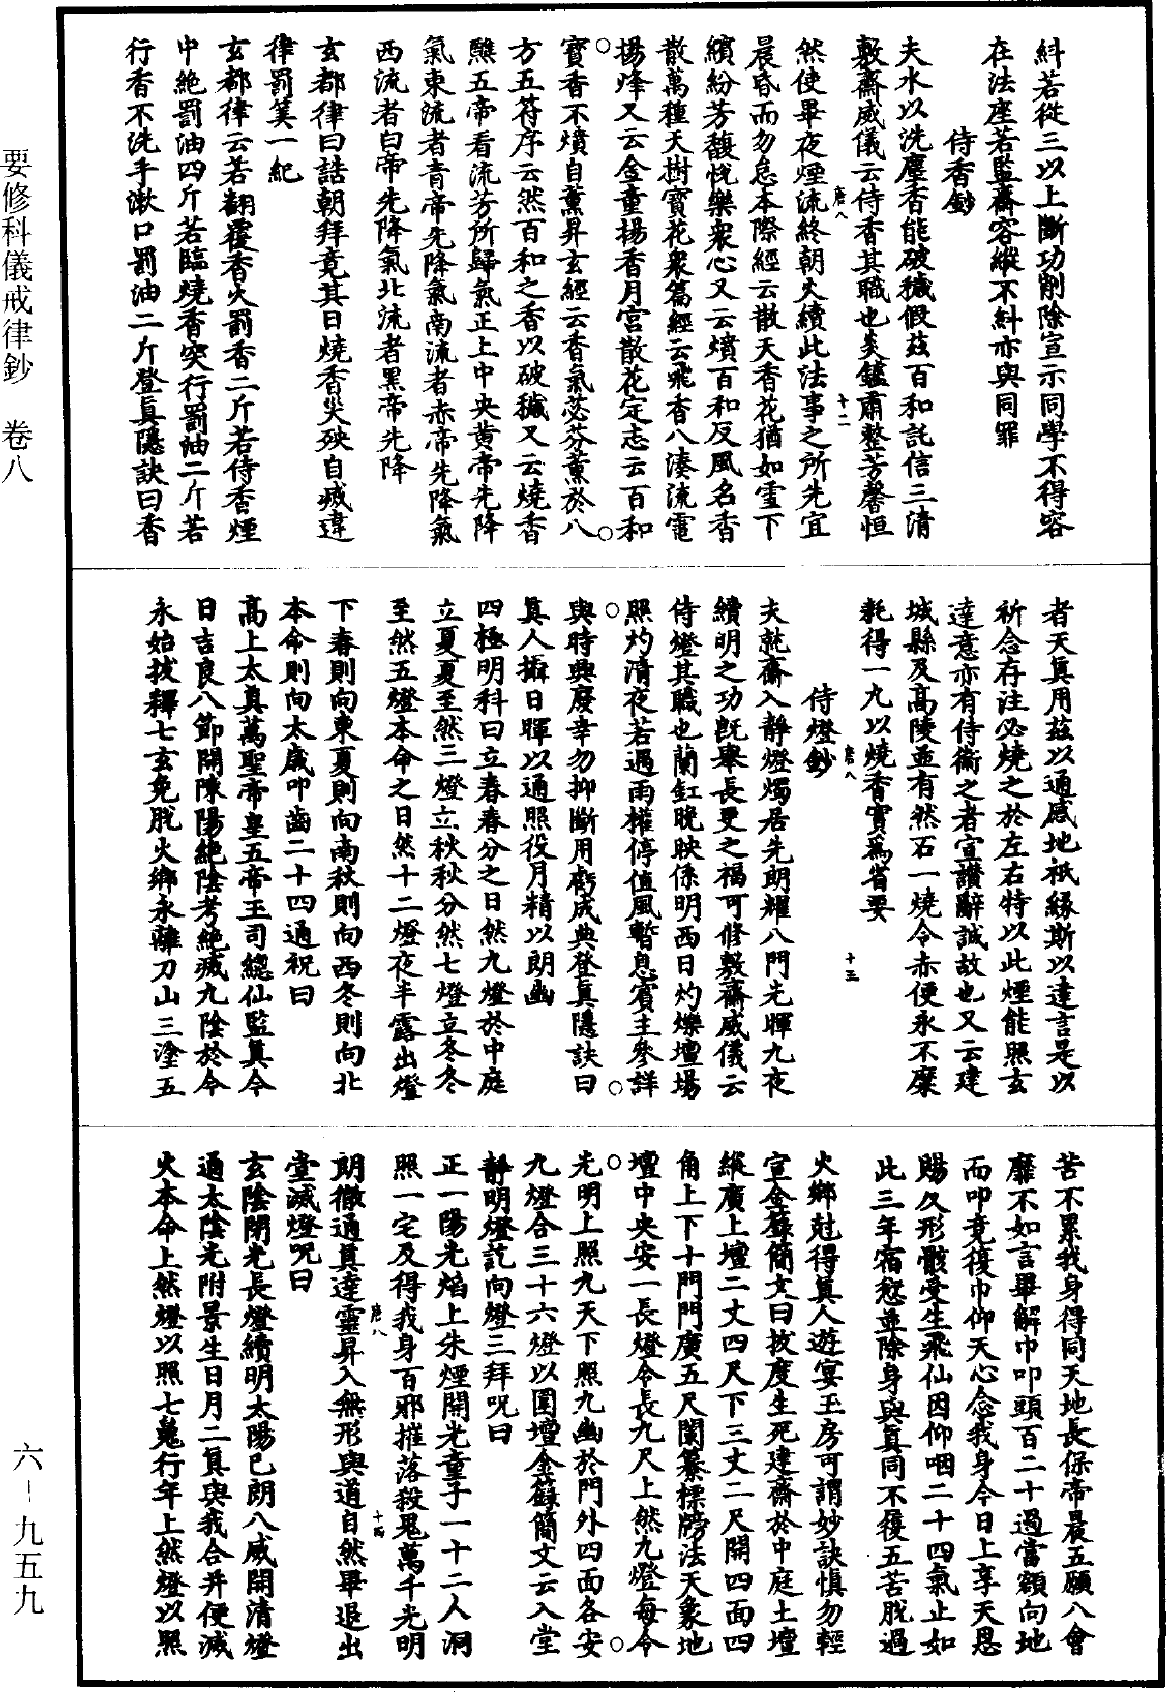 糾若從三以上斷功削除宣示同學不得容
在法座若監齋容縱不糾亦與同罪
侍香鈔
夫水以洗塵香能破穢假茲百和託信三清
敷齋威儀云侍香其職也炎鑪肅整芳馨恒
唐八
十二
然使畢夜煙流終朝火續此法事之所先宜
晨昏而勿怠本際經云散天香花猶如雪下
繽紛芳馥悅樂眾心又云燌百和反風名香
散萬種天樹寶花眾篇經云飛香八湊流電
揚烽又云金童揚香月宮散花定志云百和
寶香不燌自薰昇玄經云香氣苾芬薰於八
方五符序云然百和之香以破穢又云燒香
驗五帝看流芳所歸氣正上中央黃帝先降
氣東流者青帝先降氣南流者赤帝先降氣
西流者白帝先降氣北流者黑帝先降
玄都律曰詰朝拜竟其日燒香災殃自滅違
律罰筭一紀
玄都律云若翻覆香火罰香二斤若侍香煙
中絕罰油四斤若臨燒香突行罰油二斤若
行香不洗手漱口罰油二斤登真隱訣曰香
者天真用茲以通感地祇緣斯以達言是以
祈念存注必燒之於左右特以此煙能照玄
達意亦有侍衛之者宣讚辭誠故也又云建
城縣及高陵並有然石一燒令赤便永不糜
耗得一丸以燒香實為省要
唐八
十三
侍燈鈔
夫就齋入靜燈燭居先朗耀八門光暉九夜
續明之功既舉長更之福可修敷齋威儀云
侍燈其職也蘭釭晚映係明西日灼爍壇場
照灼清夜若遇雨權停值風暫息賓主參詳
與時興廢幸勿抑斷用虧成典登真隱訣曰
真人攝日暉以通照役月精以朗幽
四極明科曰立春春分之日然九燈於中庭
立夏夏至然三燈立秋秋分然七燈立冬冬
至然五燈本命之日然十二燈夜半露出燈
下春則向東夏則向南秋則向西冬則向北
本命則向太歲叩齒二十四通祝曰
高上太真萬聖帝皇五帝玉司總仙監真今
日吉良八節開陳陽絕陰考絕滅九陰於今
永始拔釋七玄免脫火鄉永離刀山三塗五
苦不累我身得同天地長保帝晨五願八會
靡不如言畢解巾叩頭百二十過當額向地
而叩竟復巾仰天心念我身今日上享天恩
賜久形骸受生飛仙因仰咽二十四氣止如
此三年宿愆並除身與真同不復五苦脫過
火鄉尅得真人遊宴玉房可謂妙訣慎勿輕
宣金籙簡文曰拔度生死建齋於中庭土壇
縱廣上壇二丈四尺下三丈二尺開四面四
角上下十門門廣五尺闌纂標牓法天象地
壇中央安一長燈令長九尺上然九燈每令
光明上照九天下照九幽於門外四面各安
九燈合三十六燈以圍壇金籙簡文云入堂
靜明燈訖向燈三拜呪曰
正一陽光焰上朱煙開光童子一十二人洞
照一宅及得我身百邪摧落殺鬼萬千光明
唐八
十四
朗徹通真達靈昇入無形與道自然畢退出
堂滅燈呪曰
玄陰閉光長燈續明太陽已朗八威開清燈
過太陰光附景生日月二真與我合并便滅
火本命上然燈以照七魂行年上然燈以照
要修科儀戒律鈔 卷八
六-九五九